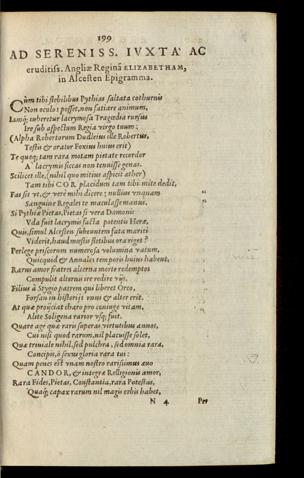 199
AD SERENISS. IVXTA' AC
eruditiss. Angliæ Reginā ELIZABETHAM,
in Alcesten Epigramma.
Cùm tibi flebilibus Pythias saltata cothurnis
Non oculos posset, non satiare animum,
Iamq; iuberetur lacrymosa Tragœdia rursus
Ire sub aspectum Regia virgo tuum:
(Alpha Robertorum Dudleius ille Robertus,
Testis & orator Foxius huius erit)
Te quoq; tam rara motam pietate recordor
A lacrymis siccas non tenuisse genas.
Scilicet ille, (nihil quo mitius aspicit æther)
Tam tibi COR placidum tam tibi mite dedit,
Fas sit vt, & verè mihi dicere: nullum vnquam
Sanguine Regales te maculasse manus.
Si Pythiæ Pietas, Pietas sic vera Damonis
Vda fuit lacrymis facta potentis Heræ,
Quis, simul Alcestin subeuntem fata mariti
Viderit, haud mœstis fletibus ora riget?
Perlege priscorum numerosa volumina vatum,
Quicquid & Annales temporis huius habent,
Rarus amor fratres alterna morte redemptos
Compulit alternis ire redire vijs.
Filius à Stygio patrem qui liberet Orco,
Forsan in historijs vnus & alter erit.
At quæ proijciat charo pro coniuge vitam,
Alite Soligena rarior vsq; fuit.
Quare age quæ raris superas virtutibus annos,
Cui nisi quod rarum, nil placuisse solet,
Quæ triuiale nihil, sed pulchra, sed omnia rara,
Concipis, ô sexus gloria rara tui:
Quam penes est vnam nostro rarissimus æuo
CANDOR, & integræ Relligionis amor,
Rara Fides, Pietas, Constantia, rara Potestas,
Quaq; capax rarum nil magis orbis habet,
N 4 Per